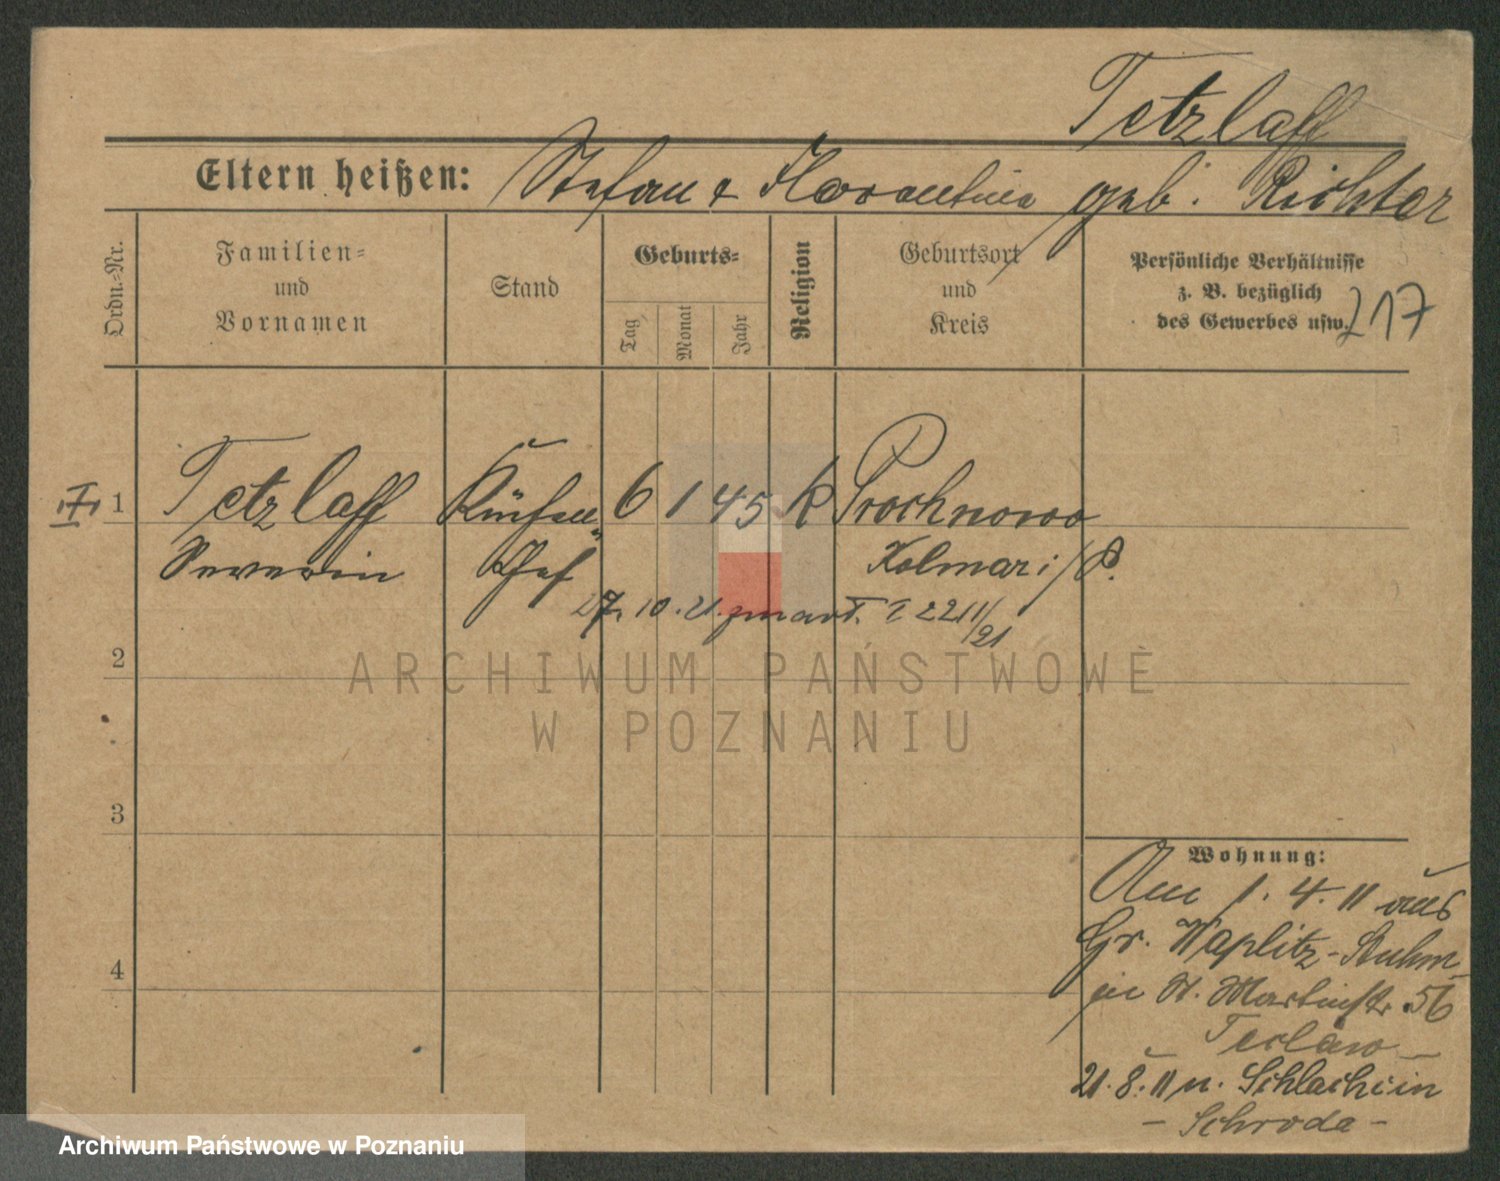 Tetzlaff
Eltern heißen: Stefan & Florentina geb. Richter
Ordn.-Nr.
Familien-
und
Vornamen
Stand
Geburts-
Tag
Monat
Jahr
Religion
Geburtsort
und
Kreis
Persönliche Verhältnisse
z. B. bezüglich
des Gewerbes usw.
217
1 Tetzlaff Küchen 6 1 45 k Prochnowo
Severin Chef Kolmar i/P.
27. 10. 21. 2211/21
2
ARCHIWUM PAŃSTWOWE
W POZNANIU
3
Wohnung:
Am 1. 4. 11 aus
Gr. Waplitz-Stuhm
in St. Martinstr. 56
4
21. 8. 11 n. Schlachcin
- Schroda -
Archiwum Państwowe w Poznaniu